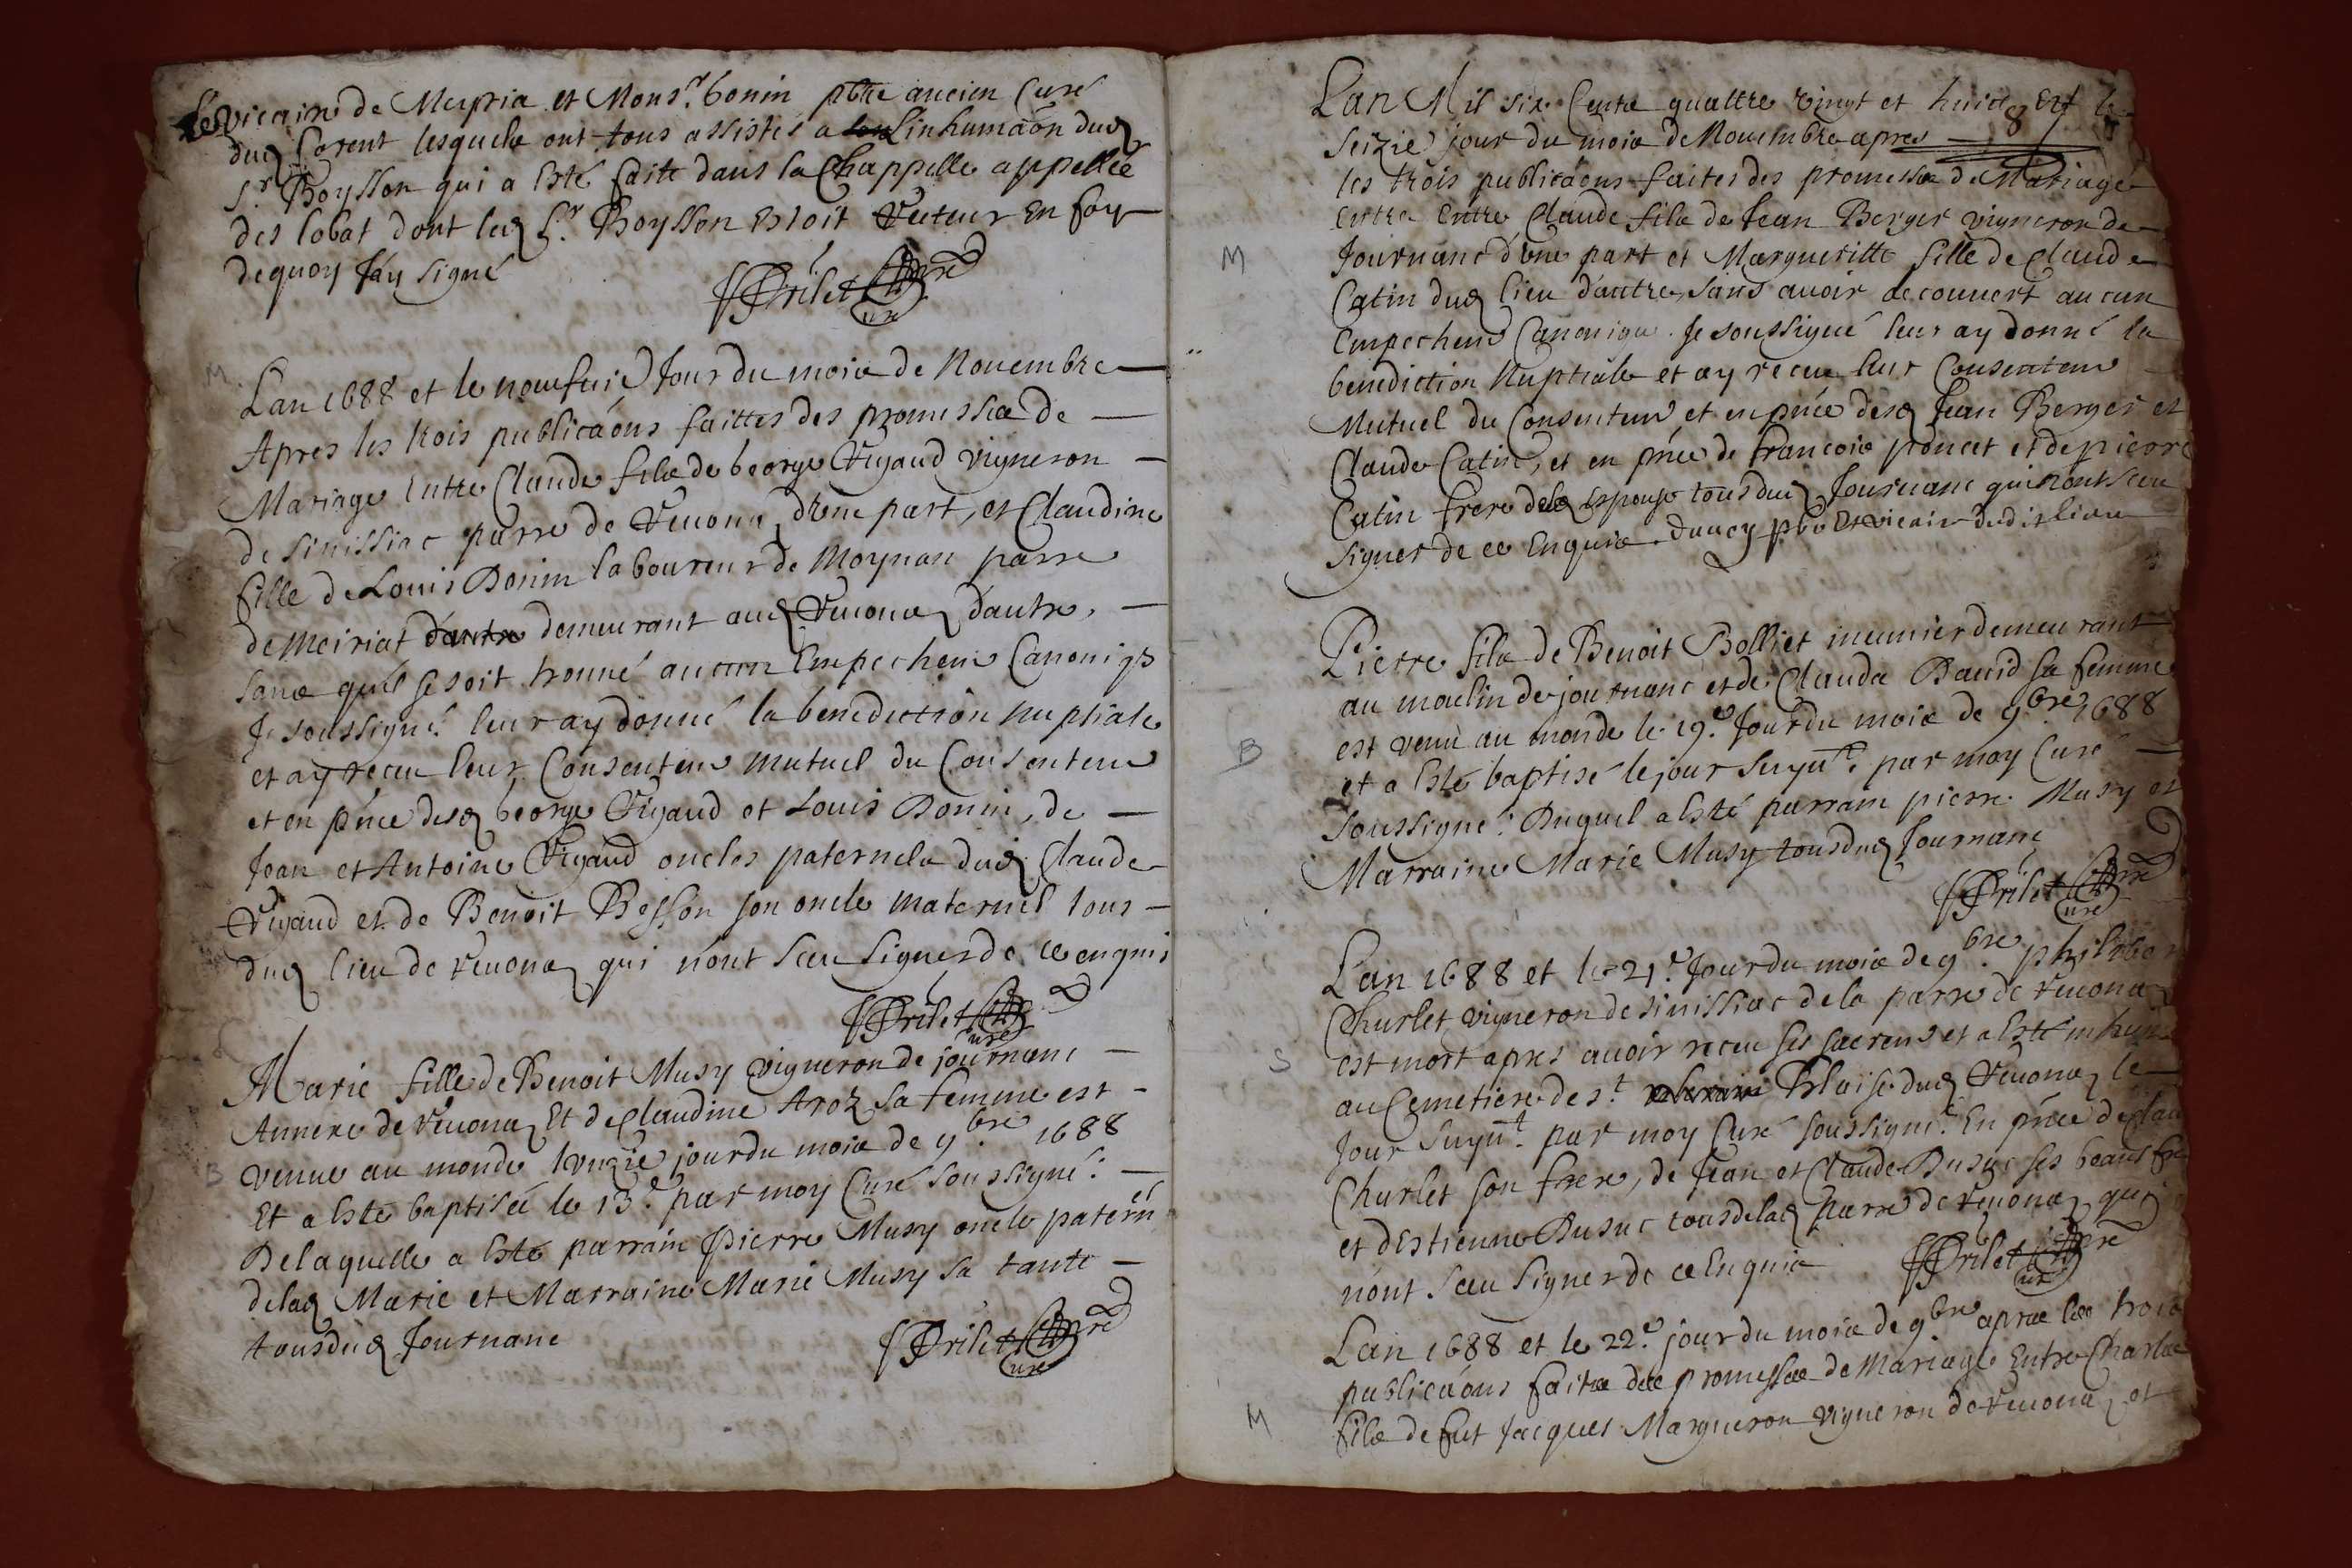 Le Vicaire de Meyria et Monsr. bonin pbre ancien Curé
dud Corent lesquels ont tous assistés a linhumaôn dud
Sr. Boysson qui a Esté faite dans la Chappelle appellée
des lobat dont led Sr. Boysson Estoit Recteur En foy
dequoy Jay signé
Prilet Curé
M
Lan 1688 et le neufuie Jour du mois de Nouembre
Apres les trois publicaôns faittes des promesses de
Mariage Entre Claude fils de George Vigaud vigneron
de sinissiac parre de Reuona, dvne part, et Claudine
fille de Louis Bonin laboureur de Moynan parre
de Meiriat dautre demeurant aud Reuonas dautre,
sans quil se soit trouué aucun Empechemt Canoniqs
Je soussigné leur ay donné la benediction Nuptiale
et ay receu leur Consentemt mutuel du Consentemt
et en pnce desd George Vigaud et Louis Bonin, de
Jean et Antoine Vigaud oncles paternels dud Claude
Vigaud et de Benoit Besson son oncle maternel tous
dud lieu de Reuonas qui nont sceu signer de ce enquis
Prilet Curé
B
Marie fille de Benoit Musy vigneron de journanc
Annexe de Reuonas Et de Claudine Aroz sa femme est
venue au monde lonzie jour du mois de 9bre 1688
Et a Esté baptisée le 13e par moy Curé soussigné:
De laquelle a Esté parrain Pierre Musy oncle patern
delad Marie et Marraine Marie Musy sa tante
tous dud Journanc
Prilet Curé
Lan Mil six Cents quattre vingt et huict Et le
seizie jour du mois de Nouembre apres
les trois publicaôns faites des promesses de Mariage
M
entre Entre Claude fils de Jean Berger vigneron de
Journanc dvne part et Margueritte fille de Claude
Catin dud lieu dautre, sans auoir decouuert aucun
Empechemt Canonique. Je soussigné leur ay donné la
benediction Nuptiale et ay receu leur Consentemt
Mutuel du Consentemt et en pnce desd Jean Berger et
Claude Catin, et en pnce de francois poncet et de pierre
Catin frere de lad Espouse tous dud Journanc qui nont sceu
signer de ce Enquis. Dancy pbre Et vicaire dudit lieu
B
Pierre fils de Benoit Bolliet meunier demeurant
au moulin de journanc et de Clauda Dauid sa femme
est venu au monde le 19e. Jour du mois de 9bre 1688
et a Esté baptisé le jour suyut. par moy Curé
soussigné: Duquel a Esté parrain pierre Musy et
Marraine Marie Musy tous dud Journanc
Prilet Curé
S
Lan 1688 et le 21e Jour du mois de 9bre philiber
Churlet vigneron de sinissiac de la parre de Reuonas
est mort apres auoir receu ses sacremt et a Esté inhumé
au Cemetiere de st. Blaise dud Reuonas le
Jour suyut. par moy Curé soussigné En pnce de Clau
Churlet son frere, de Jean et Claude Dusuc ses beaus fre
et dEstienne Dusuc tous de lad parre de Reuonas qui
nont sceu signer de ce Enquis
Prilet Curé
M
Lan 1688 et le 22e. jour du mois de 9bre apres les trois
publicaôns faites des promesses de Mariage Entre Charles
fils de fut Jacques Margueron vigneron de Reuonas et